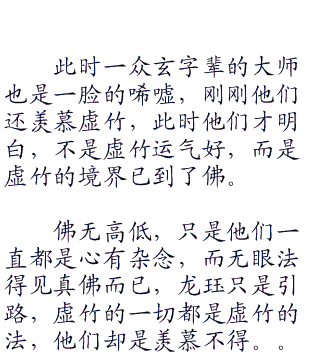 此时一众玄字辈的大师
也是一脸的唏嘘，刚刚他们
还羡慕虚竹，此时他们才明
白，不是虚竹运气好，而是
虚竹的境界已到了佛。
佛无高低，只是他们一
直都是心有杂念，而无眼法
得见真佛而已，龙珏只是引
路，虚竹的一切都是虚竹的
法，他们却是羡慕不得。。